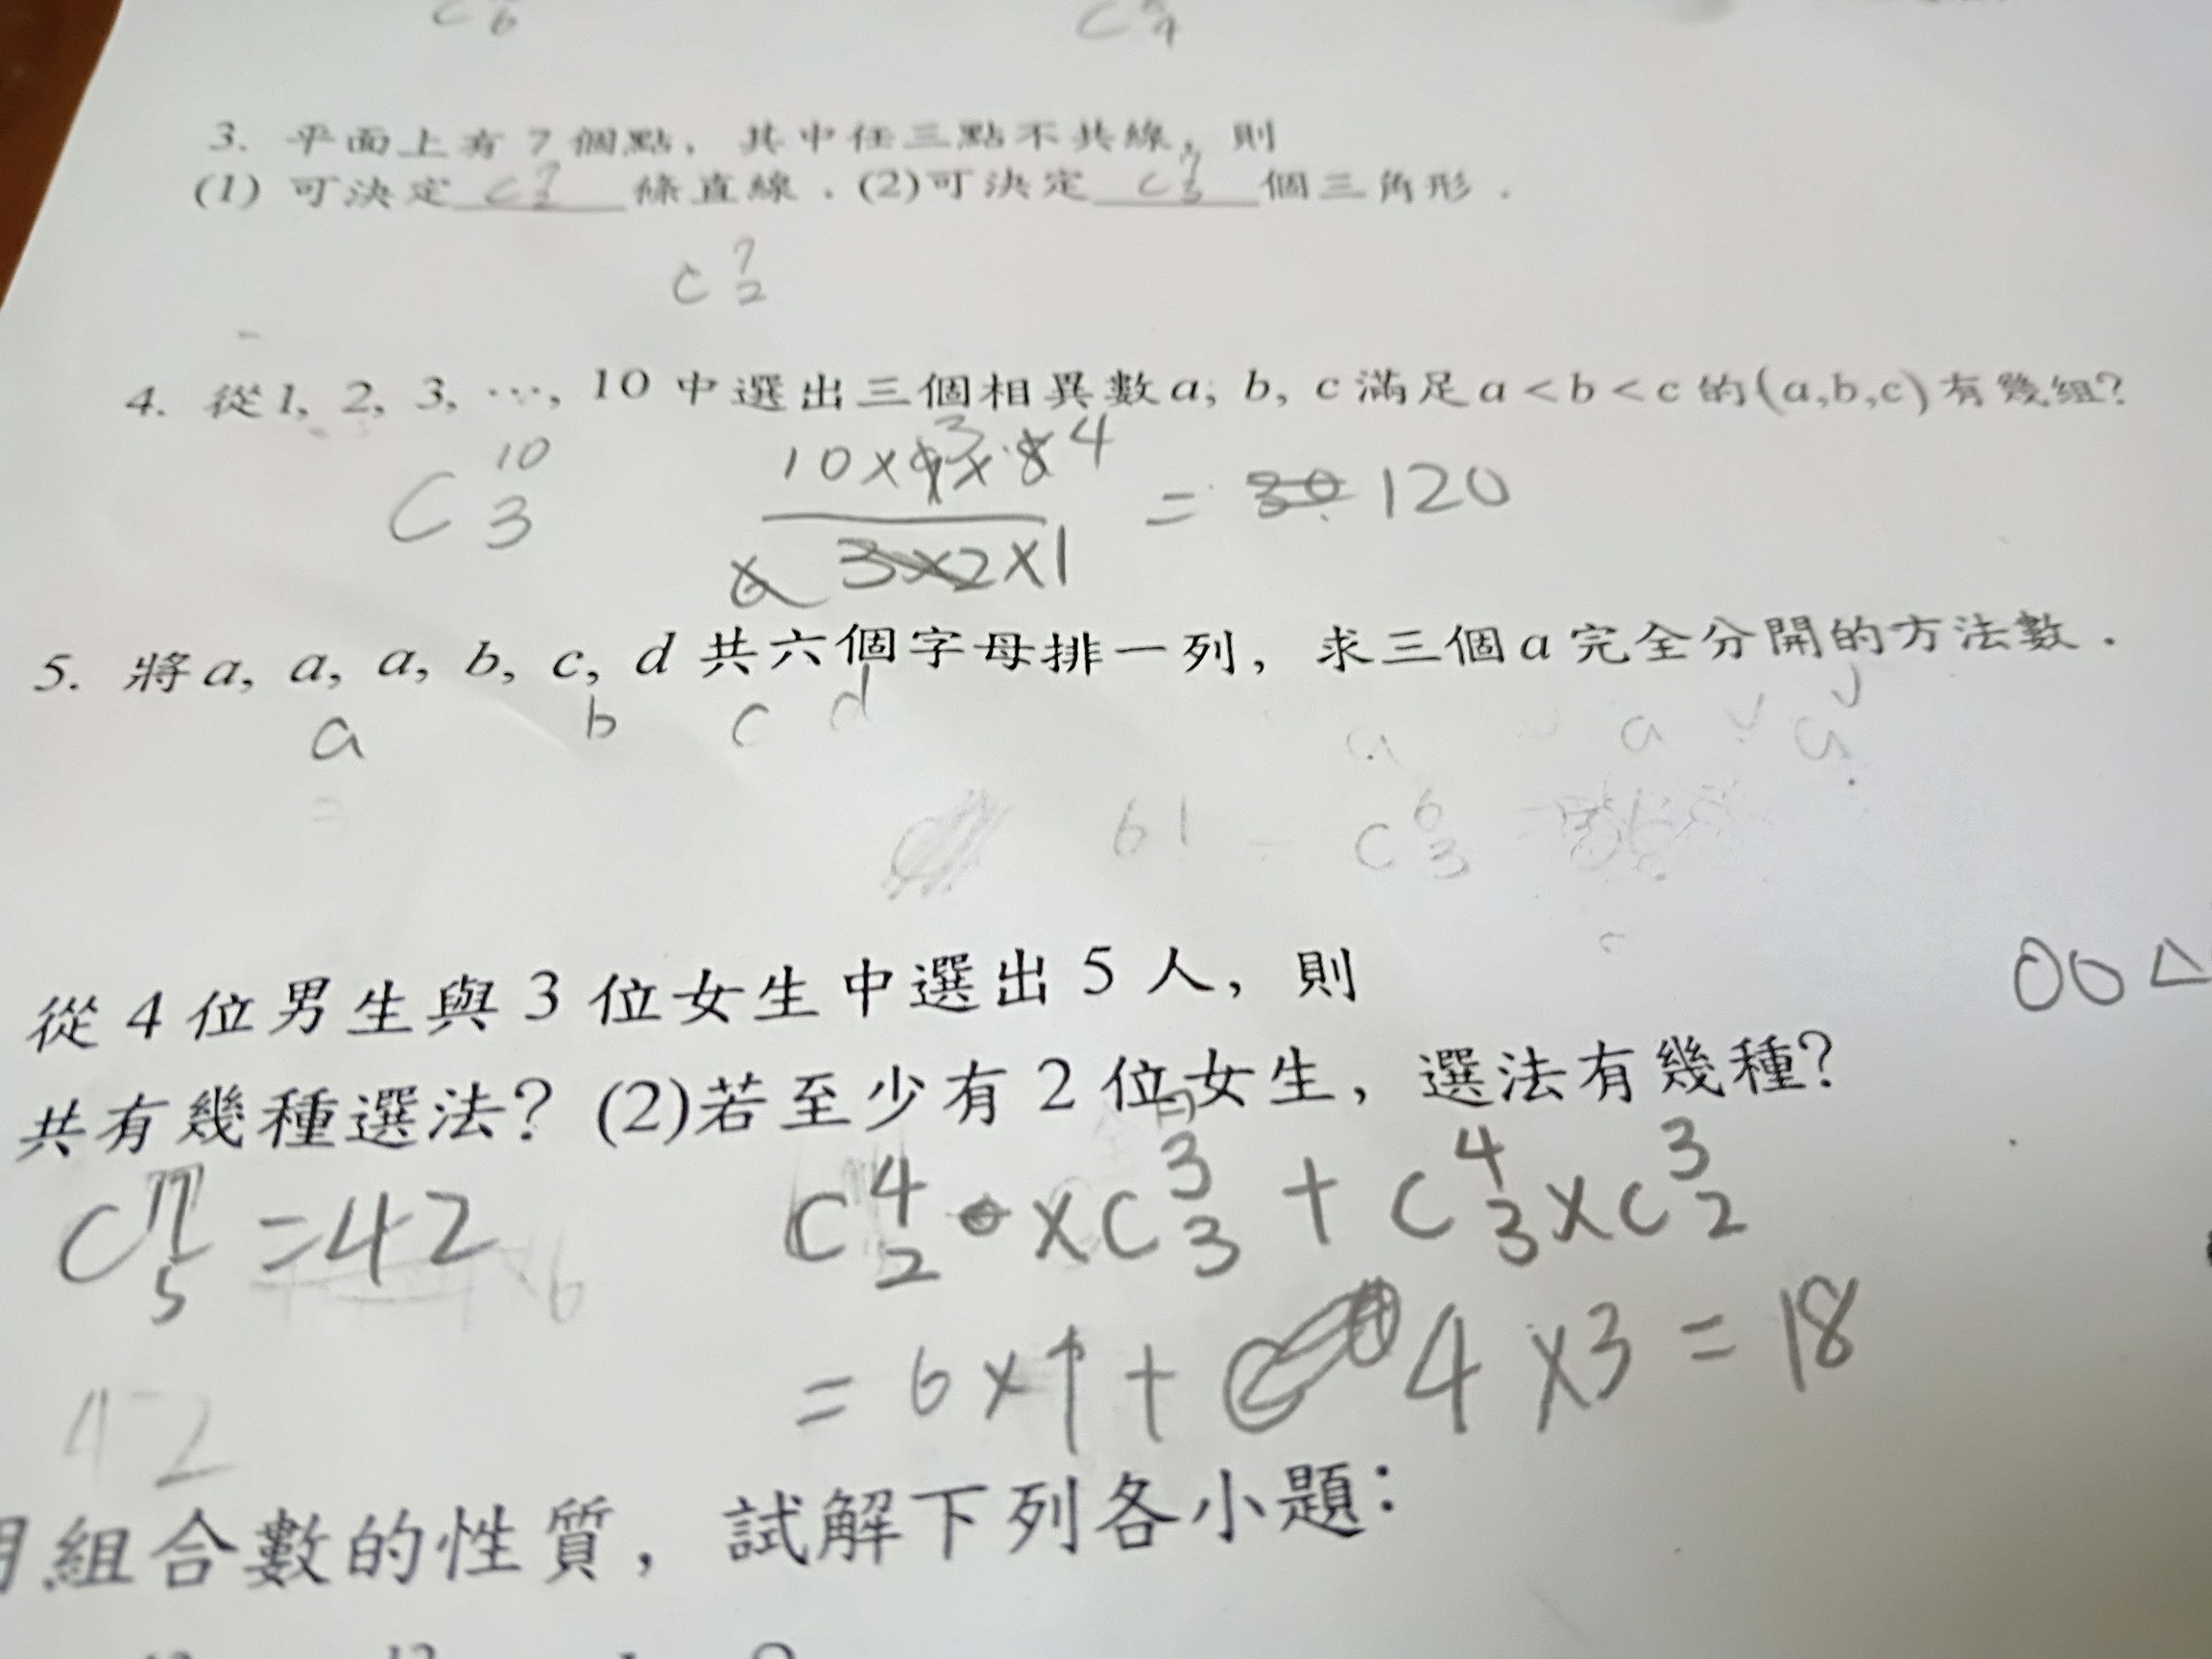 C 6 C 4
3. 平面上有 7 個點，其中任三點不共線，則
(1) 可決定 C 7 2 條直線．(2)可決定 C 7 3 個三角形．
C 7 2
4. 從1, 2, 3, …, 10 中選出三個相異數a, b, c滿足a < b < c 的(a,b,c)有幾組?
C 10 3 10×9 3×8 4 = 30 120
6 3×2×1
5. 將a, a, a, b, c, d 共六個字母排一列，求三個a完全分開的方法數．
a b c d a a a
6! C 6 3
從 4 位男生與 3 位女生中選出 5 人，則
共有幾種選法? (2)若至少有 2 位女生，選法有幾種?
C 7 5 = 42 C 4 2 × C 3 3 + C 4 3 × C 3 2
= 6 × 1 + 4 × 3 = 18
42
組合數的性質，試解下列各小題：